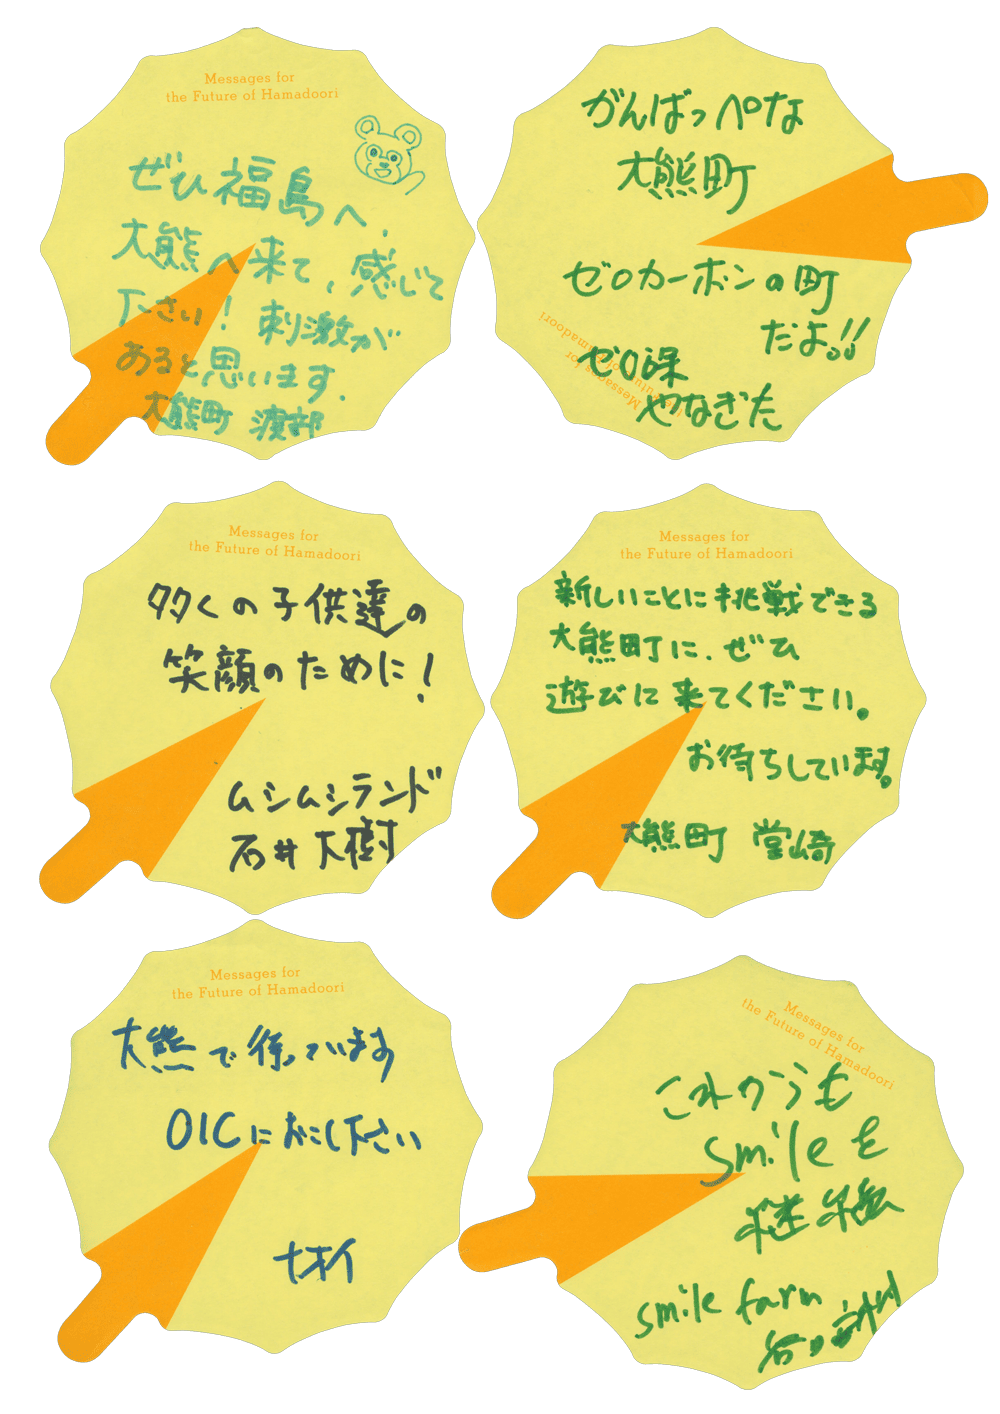 Messages for
the Future of Hamadoori
ぜひ福島へ.
大熊へ来て、感じて
下さい! 刺激が
あると思います.
大熊町 渡部
がんばっぺな
大熊町
ゼロカーボンの町
だよ!!
Messages for
the Future of Hamadoori
ゼロ禄
やなぎた
Messages for
the Future of Hamadoori
多くの子供達の
笑顔のために!
ムシムシランド
石井大樹
Messages for
the Future of Hamadoori
新しいことに挑戦できる
大熊町に.ぜひ
遊びに来てください。
お待ちしています。
大熊町 堂崎
Messages for
the Future of Hamadoori
大熊で待っています
OICにおこし下さい
ナオイ
Messages for
the Future of Hamadoori
これからも
smileを
継続
smile farm
谷口